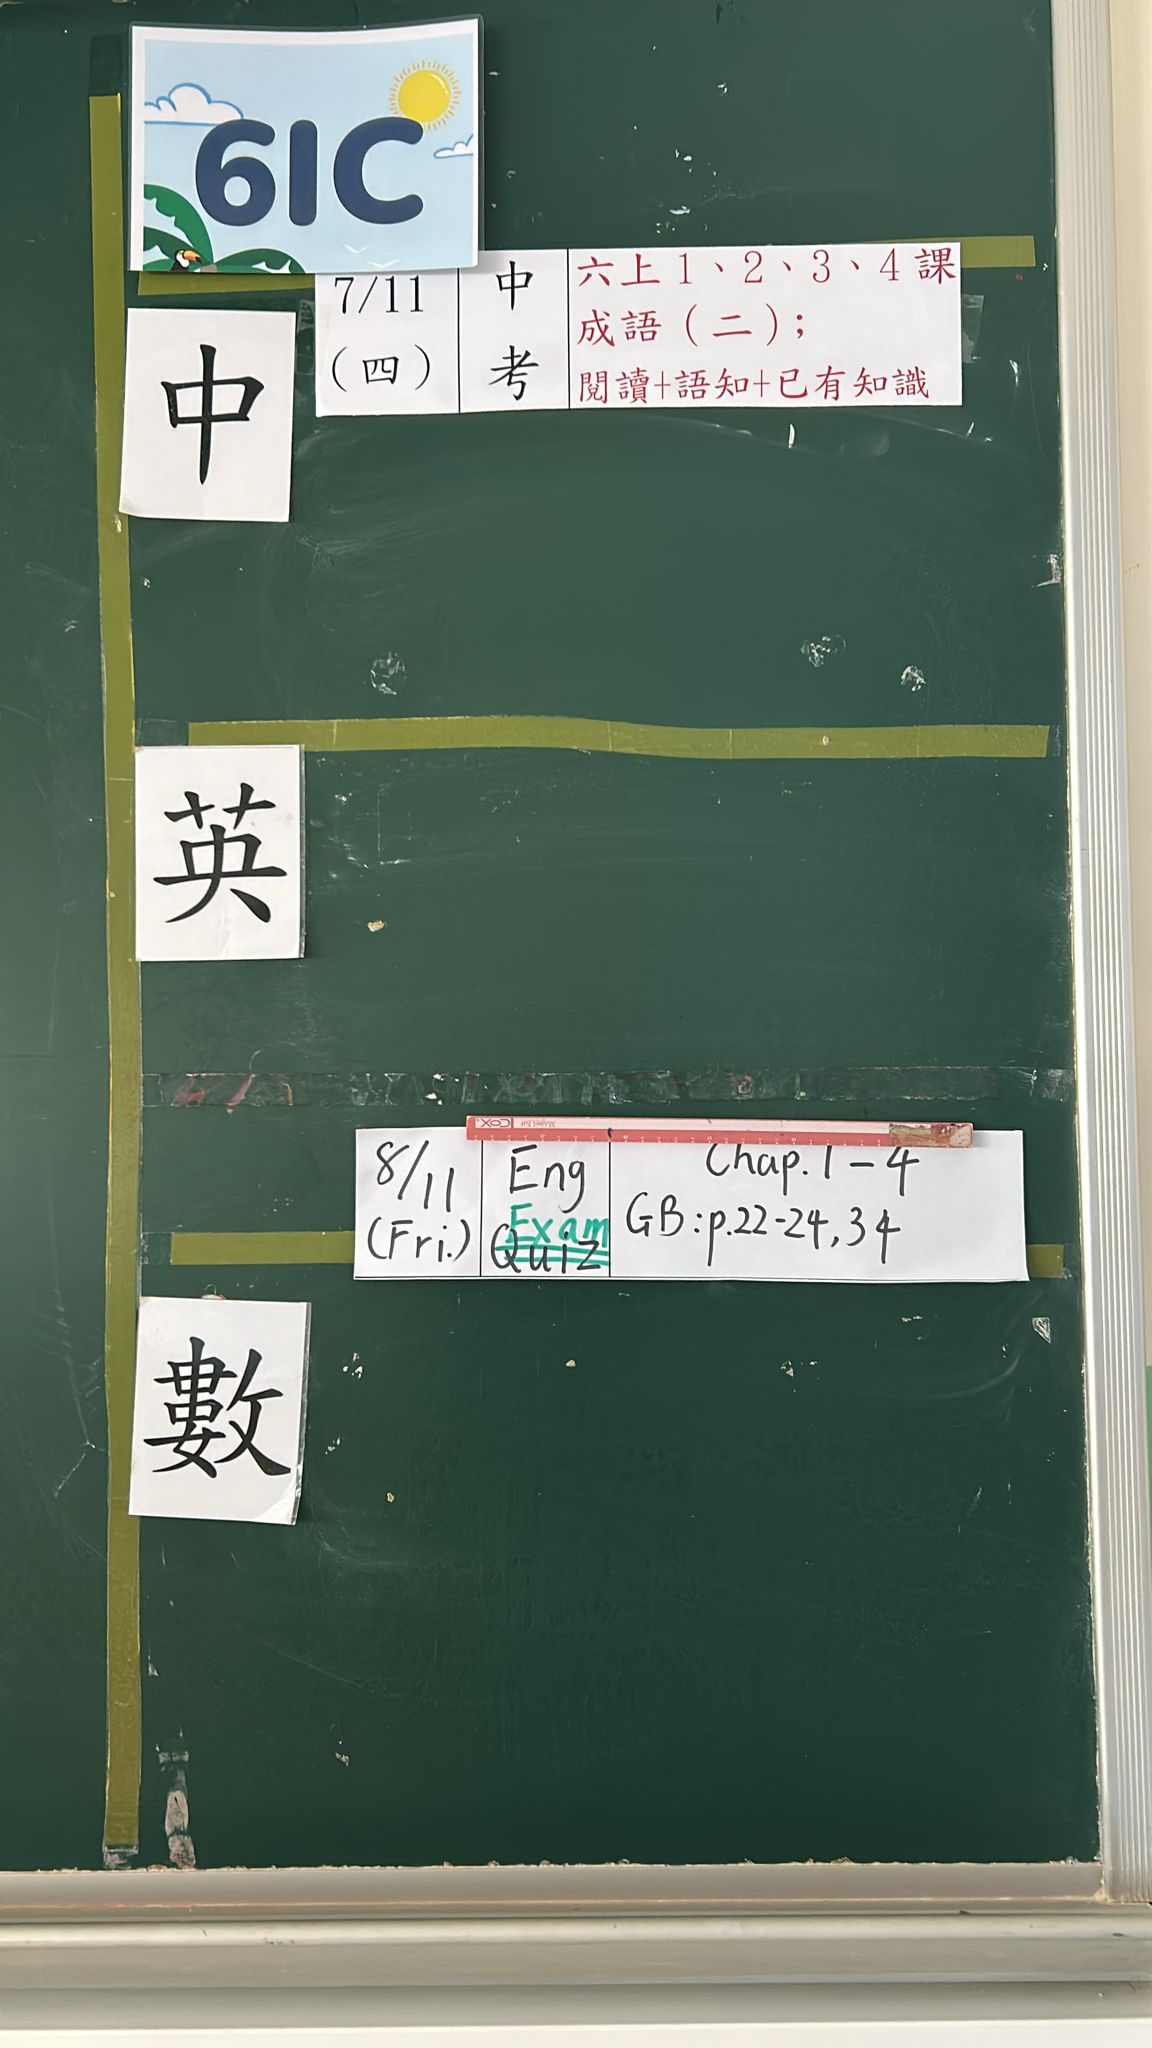 6IC
7/11
(四)
中
考
六上1、2、3、4課
成語(二);
閱讀+語知+已有知識
中
英
COX.
8/11
(Fri.)
Eng
Exam
Quiz
Chap. 1-4
GB: p.22-24, 34
數